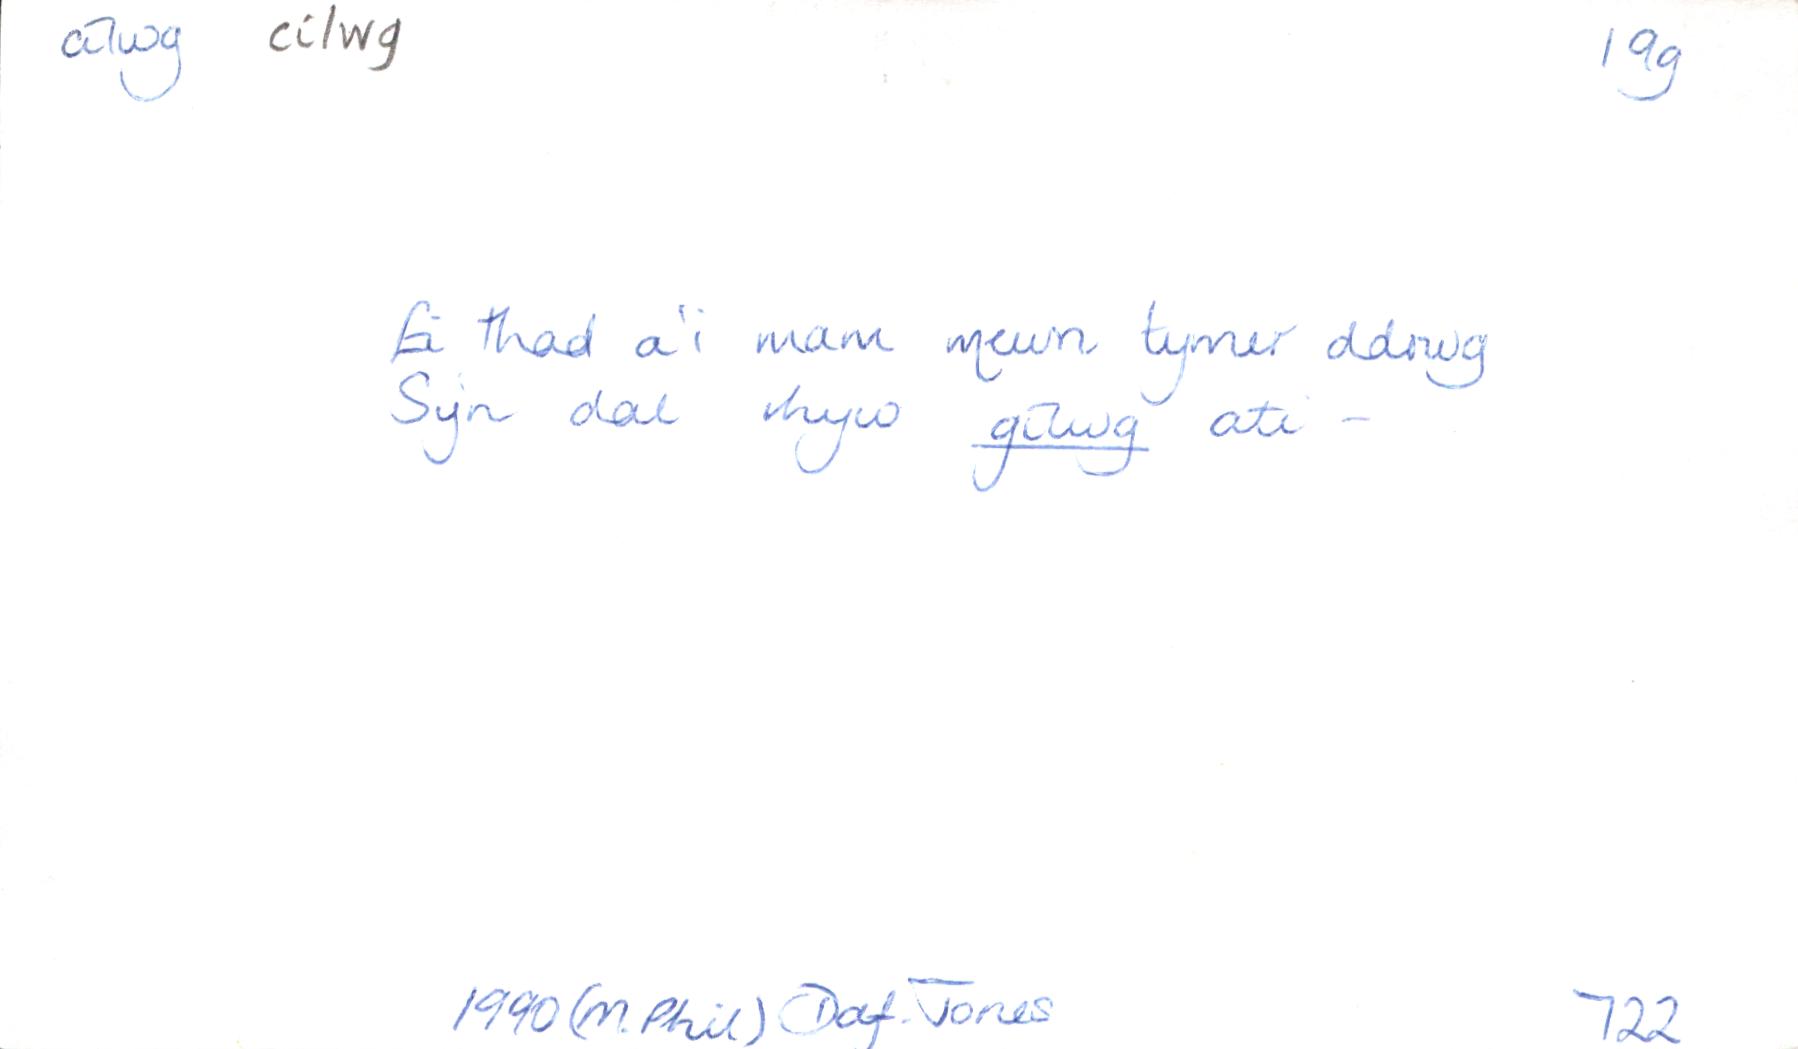 cilwg cilwg 19g
Ei thad a'i mam mewn tymer ddrwg
Sy'n dal rhyw gilwg ati –
1990 (M.Phil) Daf. Jones 722